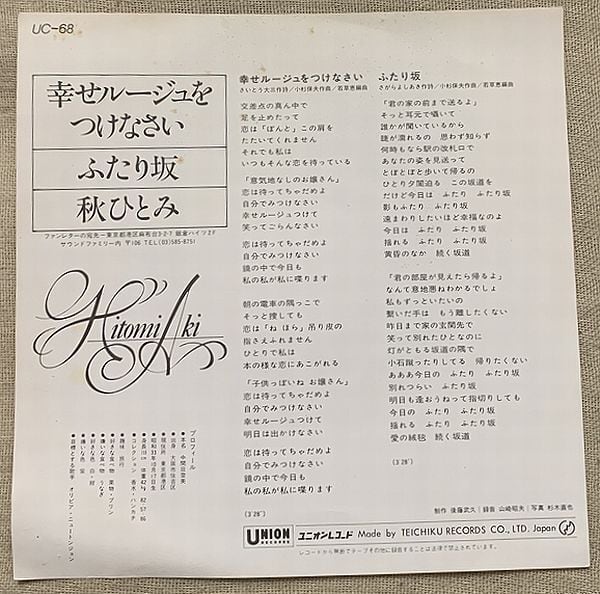 UC-68
幸せルージュを
つけなさい
ふたり坂
秋ひとみ
ファンレターの宛先―東京都港区麻布台3-2-7 飯倉ハイツ2F
サウンドファミリー内 〒106 TEL(03)585-8251
Hitomi Aki
プロフィール
●本名 中間由登美
●出身 大阪市住吉区
●現住所 東京都港区
●昭和33年10月17日生
●身長 体重42㎏ 82 57 86
●コレクション 香水・ハンカチ
●趣味 旅行
●好きな食べ物 果物・プリン
●嫌いな食べ物 うなぎ
●好きな色 白・紺
●嫌いな色 紫
●目標とする歌手 オリビア・ニュートンジョン
幸せルージュをつけなさい
さいとう大三作詩/小杉保夫作曲/若草恵編曲
交差点の真ん中で
足を止めたって
恋は「ぽんと」この肩を
たたいてくれません
それでも私は
いつもそんな恋を待っている
「意気地なしのお嬢さん」
恋は待ってちゃだめよ
自分でみつけなさい
幸せルージュつけて
笑ってごらんなさい
恋は待ってちゃだめよ
自分でみつけなさい
鏡の中で今日も
私の私が私に喋ります
朝の電車の隅っこで
そっと捜しても
恋は「ね ほら」吊り皮の
指さえふれません
ひとりで私は
本の様な恋にあこがれる
「子供っぽいね お嬢さん」
恋は待ってちゃだめよ
自分でみつけなさい
幸せルージュつけて
明日は出かけなさい
恋は待ってちゃだめよ
自分でみつけなさい
鏡の中で今日も
私の私が私に喋ります
(3′28″)
ふたり坂
さがらよしあき作詩/小杉保夫作曲/若草恵編曲
「君の家の前まで送るよ」
そっと耳元で囁いて
誰かが聞いているから
睫が濡れるの 思わず知らず
何時もなら駅の改札口で
あなたの姿を見送って
とぼとぼと歩いて帰るの
ひとり夕闇迫る この坂道を
だけど今日は ふたり ふたり坂
影もふたり ふたり坂
遠まわりしたいほど幸福なのよ
今日は ふたり ふたり坂
揺れる ふたり ふたり坂
黄昏のなか 続く坂道
「君の部屋が見えたら帰るよ」
なんて意地悪ねわかるでしょ
私もずっといたいの
繋いだ手は もう離したくない
昨日まで家の玄関先で
笑って別れたひとなのに
灯がともる坂道の隅で
小石蹴ったりしてる 帰りたくない
あああ今日の ふたり ふたり坂
別れづらい ふたり坂
明日も逢おうねって指切りしても
今日の ふたり ふたり坂
揺れる ふたり ふたり坂
愛の絨毯 続く坂道
(3′28″)
制作 後藤武久|録音 山崎昭夫|写真 杉木直也
UNION RECORDS ユニオンレコード Made by TEICHIKU RECORDS CO., LTD. Japan
レコードから無断でテープその他に録音することは法律で禁止されています。